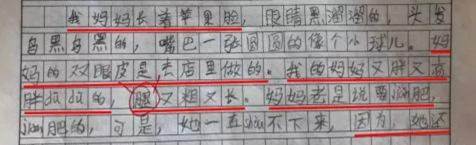 我妈妈长着苹果脸，眼睛黑溜溜的，头发
乌黑乌黑的，嘴巴一张圆圆的像个小球儿。妈
妈的双眼皮是去店里做的。我的妈妈又胖又高
胖dūdū的，腿又粗又长。妈妈老是说要减肥，
jiǎn肥的，可是，她一直shòu不下来，因为，她还